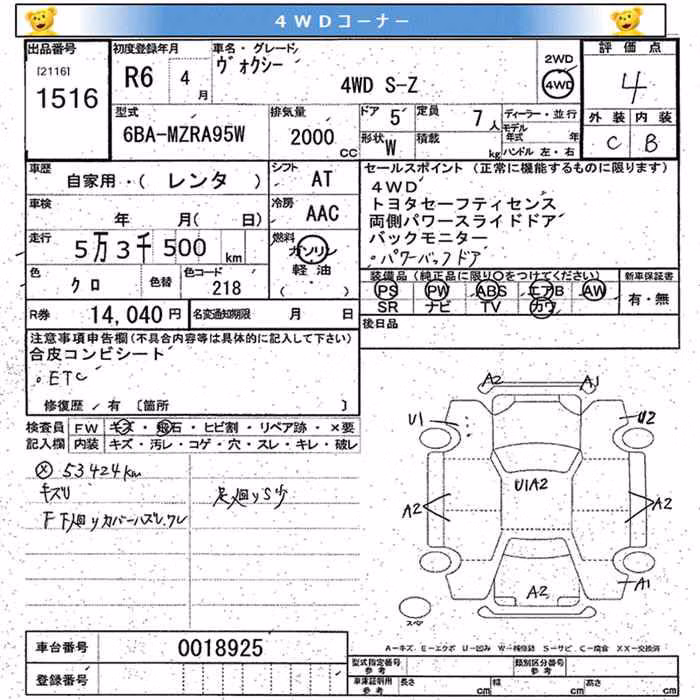 4WDコーナー
出品番号 初度登録年月 車名・グレード 評価点
[2116] R6 4月 ヴォクシー 2WD
1516 4WD S-Z 4WD 4
型式 排気量 ドア 5 定員 7人 ディーラー・並行 外装 内装
6BA-MZRA95W 2000CC 形状 W 積載 kg モデル年式 年 C B
ハンドル 左・右
車歴 自家用・(レンタ) シフト AT セールスポイント(正常に機能するものに限ります)
車検 年 月( 日) 冷房 AAC 4WD
トヨタセーフティセンス
両側パワースライドドア
走行 5万3千500km 燃料 ガソリン バックモニター
軽油 。パワーバックドア
( )
色 クロ 色替 色コード 218 装備品(純正品に限り〇をつけてください) 新車保証書
PS PW ABS エアB AW 有・無
SR ナビ TV カワ
R券 14,040円 名変通知期限 月 日 後日品
注意事項申告欄(不具合内容等は具体的に記入して下さい)
合皮コンビシート
。ETC
修復歴 有 [箇所 ]
検査員 FW キズ・飛石・ヒビ割・リペア跡・×要
記入欄 内装 キズ・汚レ・コゲ・穴・スレ・キレ・破レ
ⓧ 53424km
キズU 足廻りS少
F下廻りカバーハズレ.ワレ
A2 A1
U1 U2
U1A2
A2 A2
A2 A1
スペア
A-キズ. E-エクボ U-凹み W-補修跡 S-サビ. C-腐食 XX-交換済
車台番号 0018925
登録番号
型式指定番号 参考 類別区分番号 参考
車庫証明用 参考 長さ cm 幅 cm 高さ cm